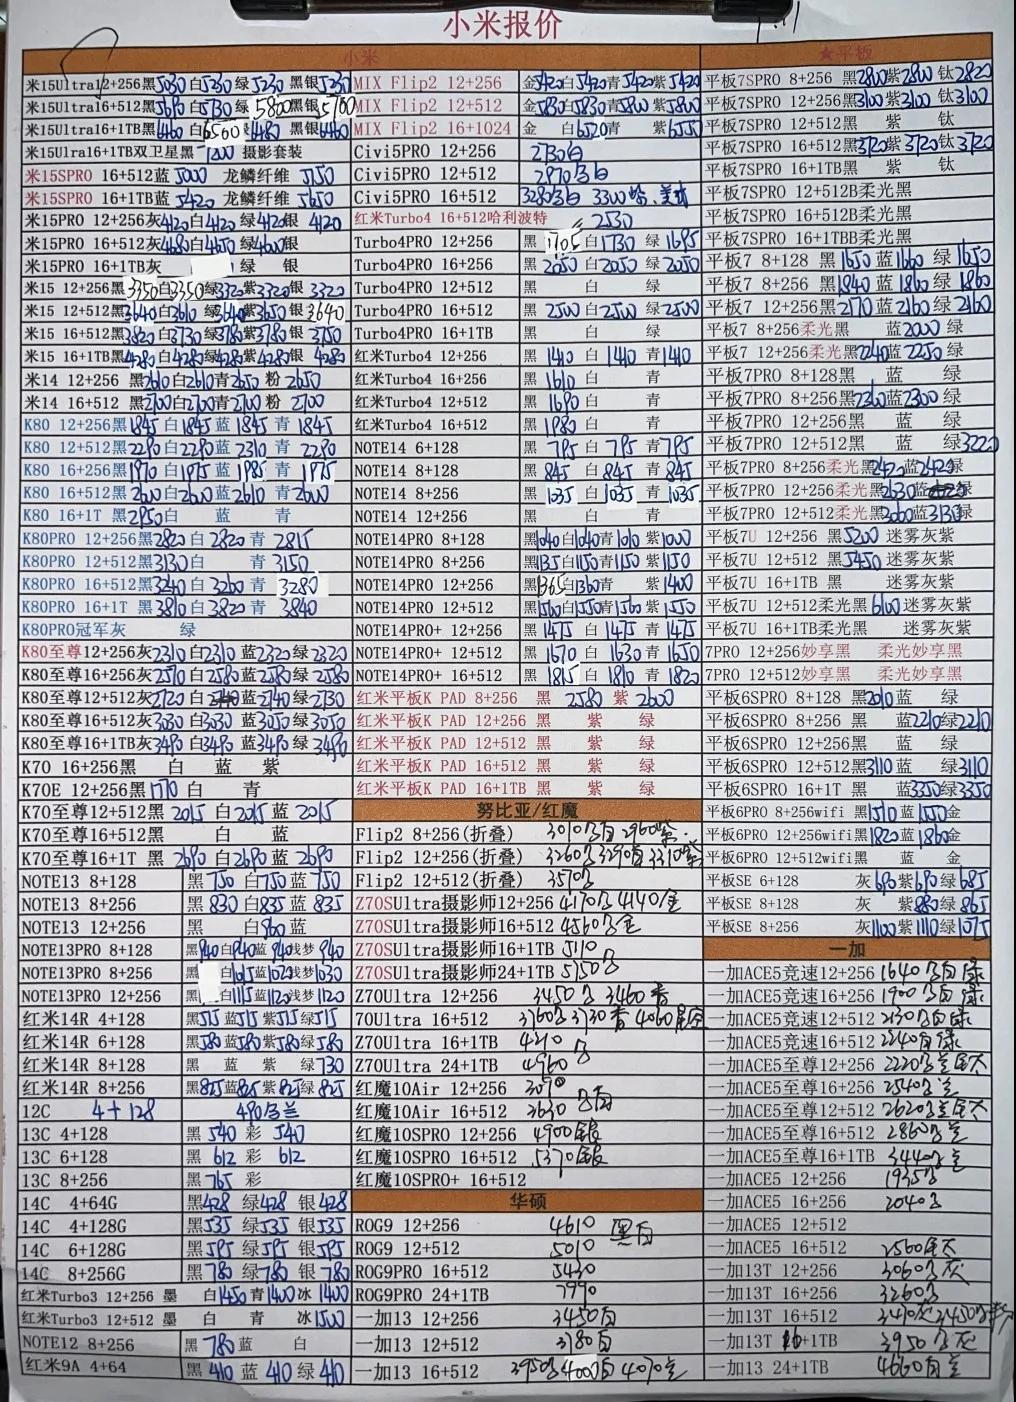 小米报价
小米
米15Ultra12+256黑5030白5230绿5230 黑银5230
米15Ultra16+512黑5690白5730绿5800黑银5700
米15Ultra16+1TB黑6460 白6500 绿6480 黑银6460
米15Ulra16+1TB双卫星黑7200 摄影套装
米15SPRO 16+512蓝5000 龙鳞纤维5150
米15SPRO 16+1TB蓝5420 龙鳞纤维5650
米15PRO 12+256灰4120白4120绿4120银4120
米15PRO 16+512灰4680白4650绿4600银
米15PRO 16+1TB灰 绿 银
米15 12+256黑3350白3350绿3320紫3320银3320
米15 12+512黑3640白3610绿3640紫3650银3640
米15 16+512黑3820白3730绿3780紫3780银3750
米15 16+1TB黑4280白4280绿4280紫4280银4280
米14 12+256 黑2610白2610青2650粉2650
米14 16+512 黑2700白2700青2700粉2700
K80 12+256黑1845白1845蓝1845青1845
K80 12+512黑2290白2290蓝2310青2290
K80 16+256黑1970白1975蓝1985青1975
K80 16+512黑2600白2600蓝2610青2600
K80 16+1T 黑2950白 蓝 青
K80PRO 12+256黑2820白2820青2815
K80PRO 12+512黑3130白 青3150
K80PRO 16+512黑3240白3260青3280
K80PRO 16+1T 黑3810白3820青3840
K80PRO冠军灰 绿
K80至尊12+256灰2310白2310蓝2320绿2320
K80至尊16+256灰2570白2580蓝2580绿2580
K80至尊12+512灰2720白 蓝2740绿2730
K80至尊16+512灰3030白3030蓝3050绿3050
K80至尊16+1TB灰3490白3490蓝3490绿3490
K70 16+256黑 白 蓝 紫
K70E 12+256黑1770白 青
K70至尊12+512黑2015白2015蓝2015
K70至尊16+512黑 白 蓝
K70至尊16+1T 黑2690白2690蓝2690
NOTE13 8+128 黑750白750蓝750
NOTE13 8+256 黑830白835蓝835
NOTE13 12+256 黑 白960蓝
NOTE13PRO 8+128 黑940白940蓝940浅梦940
NOTE13PRO 8+256 黑 白1015蓝1025浅梦1030
NOTE13PRO 12+256 黑 白1115蓝1120浅梦1120
红米14R 4+128 黑515蓝515紫515绿515
红米14R 6+128 黑580蓝580紫580绿580
红米14R 8+128 黑 蓝 紫 绿730
红米14R 8+256 黑825蓝825紫825绿825
12C 4+128 490乌兰
13C 4+128 黑540彩540
13C 6+128 黑612彩612
13C 8+256 黑765彩
14C 4+64G 黑428绿428银428
14C 4+128G 黑535绿535银535
14C 6+128G 黑595绿595银595
14C 8+256G 黑780绿780银780
红米Turbo3 12+256 墨 白1450青1400冰1400
红米Turbo3 12+512 墨 白 青 冰1500
NOTE12 8+256 黑780蓝 白
红米9A 4+64 黑410蓝410绿410
MIX Flip2 12+256 金5420白5420青5420紫5420
MIX Flip2 12+512 金5830白5830青5800紫5800
MIX Flip2 16+1024 金 白6520青 紫6550
Civi5PRO 12+256 2730白
Civi5PRO 12+512 2970乌白
Civi5PRO 16+512 3280乌白 3300
红米Turbo4 16+512哈利波特 2530
Turbo4PRO 12+256 黑1705白1730绿1695
Turbo4PRO 16+256 黑2050白2050绿2050
Turbo4PRO 12+512 黑 白 绿
Turbo4PRO 16+512 黑2500白2500绿2500
Turbo4PRO 16+1TB 黑 白 绿
红米Turbo4 12+256 黑1410白1410青1410
红米Turbo4 16+256 黑1610白 青
红米Turbo4 12+512 黑1690白 青
红米Turbo4 16+512 黑1980白 青
NOTE14 6+128 黑795白795青795
NOTE14 8+128 黑845白845青845
NOTE14 8+256 黑1035白1035青1035
NOTE14 12+256 黑 白 青
NOTE14PRO 8+128 黑1040白1040青1010紫1000
NOTE14PRO 8+256 黑1135白1150青1150紫1150
NOTE14PRO 12+256 黑1365白1360青 紫1400
NOTE14PRO 12+512 黑1560白1550青1560紫1550
NOTE14PRO+ 12+256 黑1475白1475青1475
NOTE14PRO+ 12+512 黑1670白1630青1650
NOTE14PRO+ 16+512 黑1815白1810青1820
红米平板K PAD 8+256 黑2580紫2600
红米平板K PAD 12+256 黑 紫 绿
红米平板K PAD 12+512 黑 紫 绿
红米平板K PAD 16+512 黑 紫 绿
红米平板K PAD 16+1TB 黑 紫 绿
努比亚/红魔
Flip2 8+256(折叠) 3010乌白2960紫
Flip2 12+256(折叠) 3260乌3290白3310紫
Flip2 12+512(折叠) 3570乌
Z70SUltra摄影师12+256 4170乌4140金
Z70SUltra摄影师16+512 4560乌金
Z70SUltra摄影师16+1TB 5110
Z70SUltra摄影师24+1TB 5750乌
Z70Ultra 12+256 3450乌 3460青
70Ultra 16+512 3760乌3730青4060星空
Z70Ultra 16+1TB 4210乌
Z70Ultra 24+1TB 4960
红魔10Air 12+256 3090
红魔10Air 16+512 3630乌白
红魔10SPRO 12+256 4900银
红魔10SPRO 16+512 5370银
红魔10SPRO+ 16+512
华硕
ROG9 12+256 4610黑白
ROG9 12+512 5010
ROG9PRO 16+512 5430
ROG9PRO 24+1TB 7990
一加13 12+256 3450白
一加13 12+512 3780白
一加13 16+512 3950乌4000白4070兰
★平板
平板7SPRO 8+256 黑2800紫2800钛2820
平板7SPRO 12+256黑3100紫3100钛3100
平板7SPRO 12+512黑 紫 钛
平板7SPRO 16+512黑3720紫3720钛3720
平板7SPRO 16+1TB黑 紫 钛
平板7SPRO 12+512B柔光黑
平板7SPRO 16+512B柔光黑
平板7SPRO 16+1TBB柔光黑
平板7 8+128 黑1650蓝1660绿1650
平板7 8+256 黑1840蓝1860绿1860
平板7 12+256黑2170蓝2160绿2160
平板7 8+256柔光黑 蓝2000绿
平板7 12+256柔光黑2240蓝2250绿
平板7PRO 8+128黑 蓝 绿
平板7PRO 8+256黑2310蓝2300绿
平板7PRO 12+256黑 蓝 绿
平板7PRO 12+512黑 蓝 绿3220
平板7PRO 8+256柔光黑2420蓝2420绿
平板7PRO 12+256柔光黑2630蓝 绿
平板7PRO 12+512柔光黑3060蓝3130绿
平板7U 12+256 黑5200迷雾灰紫
平板7U 12+512 黑5450迷雾灰紫
平板7U 16+1TB 黑 迷雾灰紫
平板7U 12+512柔光黑6100迷雾灰紫
平板7U 16+1TB柔光黑 迷雾灰紫
7PRO 12+256妙享黑 柔光妙享黑
7PRO 12+512妙享黑 柔光妙享黑
平板6SPRO 8+128 黑2010蓝 绿
平板6SPRO 8+256 黑 蓝2210绿2210
平板6SPRO 12+256黑 蓝 绿
平板6SPRO 12+512黑3110蓝 绿3110
平板6SPRO 16+1T 黑 蓝3350绿3350
平板6PRO 8+256wifi黑1510蓝1550金
平板6PRO 12+256wifi黑1820蓝1860金
平板6PRO 12+512wifi黑 蓝 金
平板SE 6+128 灰690紫690绿685
平板SE 8+128 灰 紫880绿865
平板SE 8+256 灰1100紫1110绿1075
一加
一加ACE5竞速12+256 1640乌白绿
一加ACE5竞速16+256 1900乌白绿
一加ACE5竞速12+512 2130乌白绿
一加ACE5竞速16+512 2240白绿
一加ACE5至尊12+256 2220乌兰钛
一加ACE5至尊16+256 2540乌兰
一加ACE5至尊12+512 2620乌兰钛
一加ACE5至尊16+512 2860乌兰
一加ACE5至尊16+1TB 3440乌兰
一加ACE5 12+256 1935乌
一加ACE5 16+256 2040乌
一加ACE5 12+512
一加ACE5 16+512 2560钛
一加13T 12+256 3060乌灰
一加13T 16+256 3260乌
一加13T 16+512 3470灰3450乌粉
一加13T 16+1TB 3950乌灰
一加13 24+1TB 4660白兰